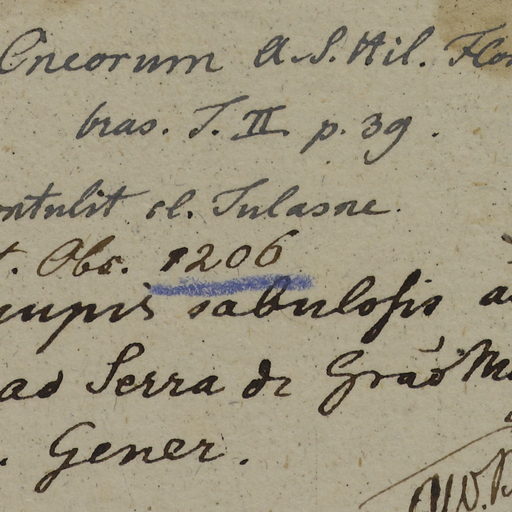 Cneorum A. S. Hil. Flor
bras. T. II p. 39.
ontulit cl. Tulasne.
t. Obs. 1206
rupis sabulosis a
ad Serra de Grão M
. Gener.